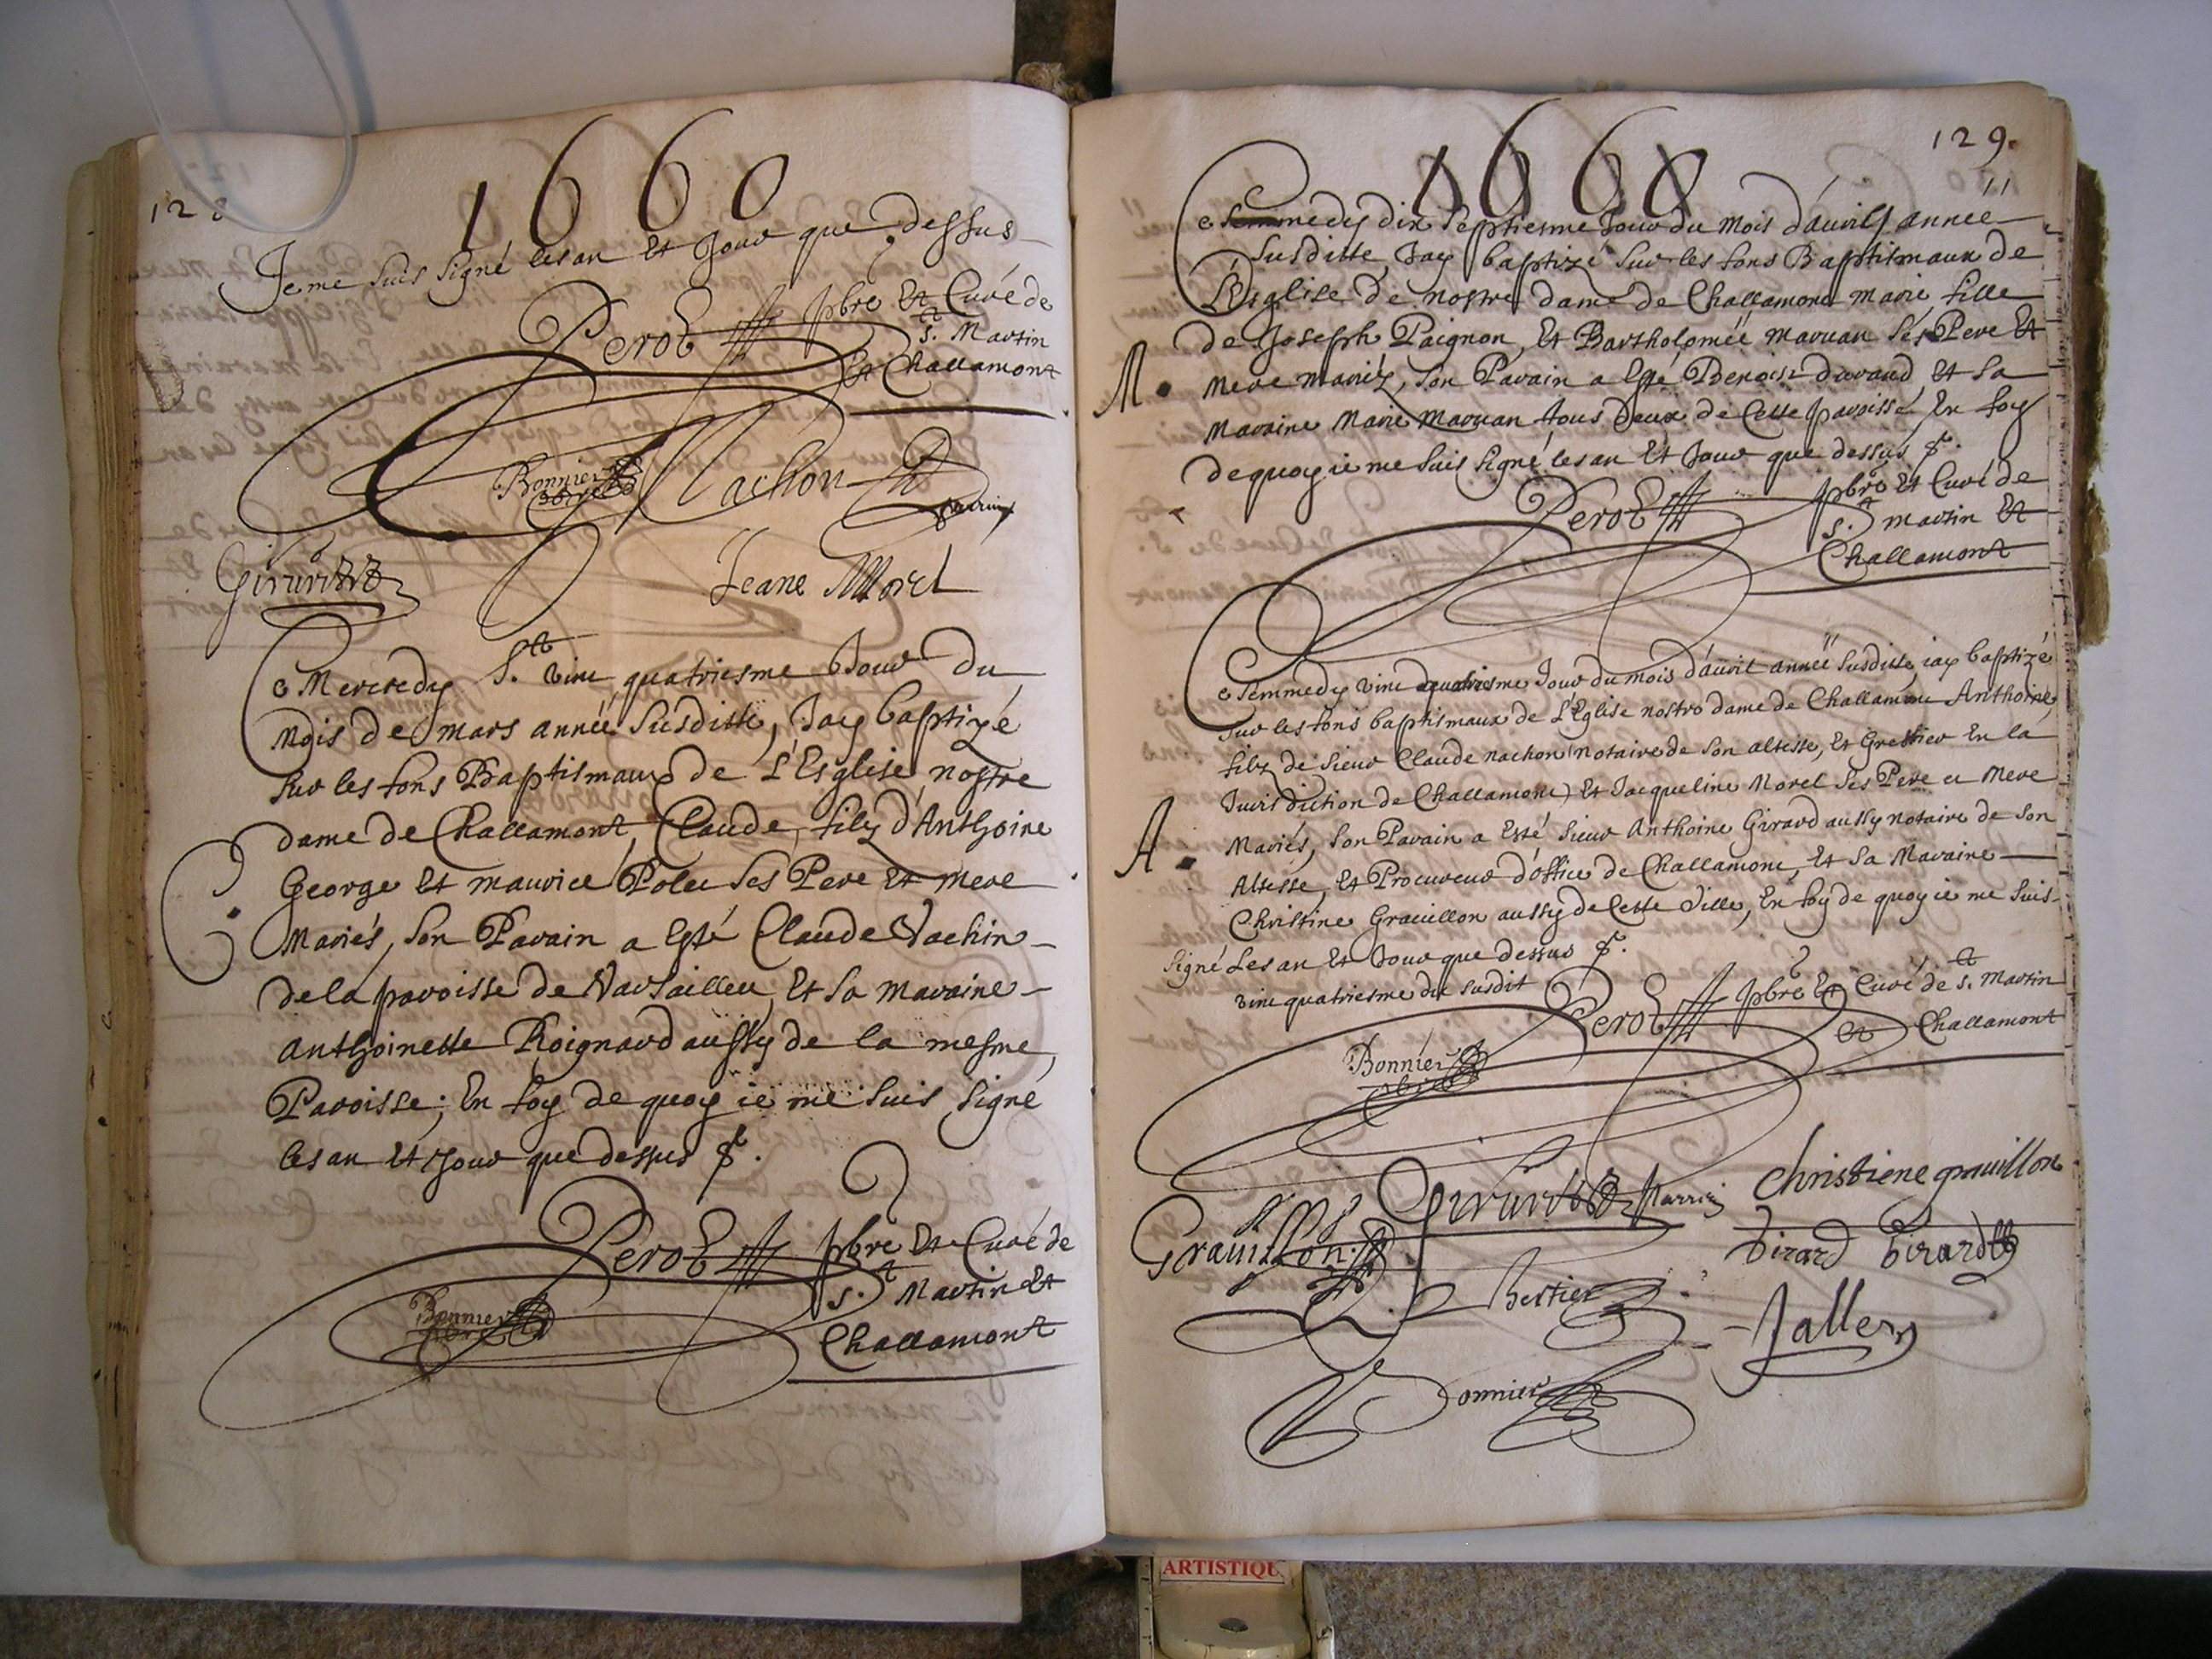 128
1660
Je me suis signé les an Et Jour que dessus
Perot pbre Et Curé de
St. Martin
Et Challamont
Bonnier
Nachon
parrin
Girard
Jeane Morel
Ce Mercredy St. vint quatriesme Jour du
Mois de mars année susditte, Jay baptizé
sur les fons Baptismaux de L'Esglise nostre
dame de Challamont, Claude, filz d'Anthoine
George Et maurice Polee ses Pere Et mere
C.
Mariés, son Parain a Esté Claude Vachin
de la paroisse de Varsailleu, Et sa maraine
Anthoinette Roignard aussy de la mesme,
Paroisse; En foy de quoy ie me suis signé
les an Et Jour que dessus
Perot pbre Et Curé de
St. Martin Et
Challamont
Bonnier
129.
1660
Ce semmedy dix septiesme Jour du mois d'auril année
susditte, Jay baptizé sur les fons Baptismaux de
L'Esglise de nostre dame de Challamont marie fille
de Joseph Paignon, Et Bartholomée maruan ses Pere Et
M.
mere mariéz, son Parain a Esté Benoist durand, Et sa
maraine Marie maruan tous deux de Cette paroisse, En foy
de quoy ie me suis signé les an Et Jour que dessus
Perot pbre Et Curé de
St. martin Et
Challamont
Ce semmedy vint quatriesme Jour du mois d'auril année susditte, iay baptizé
sur les fons baptismaux de L'Eglise nostre dame de Challamont Anthoine,
filz de sieur Claude nachon notaire de son altesse, Et Greffier En la
Jurisdiction de Challamont, Et Jacqueline Morel ses Pere et Mere
A.
Mariés, son Parain a Esté sieur Anthoine Girard aussy notaire de son
Altesse, Et Procureur d'office de Challamont, Et sa Maraine
Christine Grauillon aussy de Cette Ville, En foy de quoy ie me suis
signé Les an Et Jour que dessus
vint quatriesme du susdit
Perot pbre Et Curé de St. Martin
Et Challamont
Bonnier
Girard parrin
Christiene grauillon
Grauillon
Girard Girard
Bestier
Jaller
Bonnier
ARTISTIQU